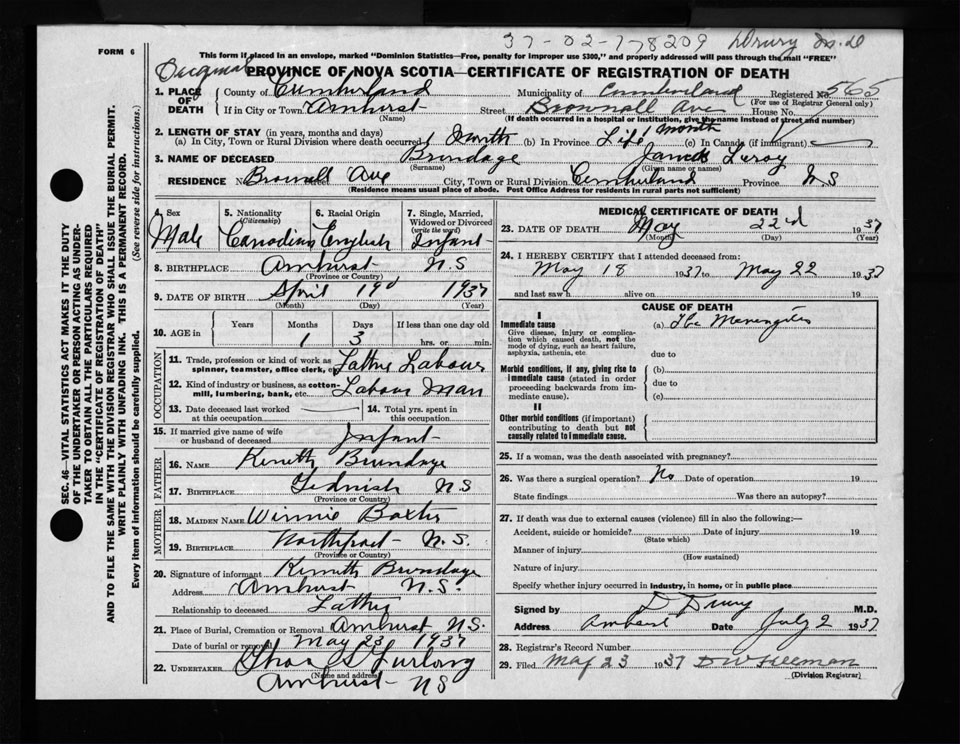 37-02-778209 Drury M.D
FORM 6
This form if placed in an envelope, marked "Dominion Statistics—Free, penalty for improper use $300," and properly addressed will pass through the mail "FREE"
PROVINCE OF NOVA SCOTIA—CERTIFICATE OF REGISTRATION OF DEATH
1. PLACE OF DEATH County of Cumberland Municipality of Cumberland Registered No. 565
(For use of Registrar General only)
If in City or Town Amherst Street Brownell Ave House No.
(Name) (If death occurred in a hospital or institution, give the name instead of street and number)
2. LENGTH OF STAY (in years, months and days) 1 month
(a) In City, Town or Rural Division where death occurred 1 Month (b) In Province Life (c) In Canada (if immigrant)
3. NAME OF DECEASED Brundage James Leroy
(Surname) (Given name or names)
RESIDENCE No. Brownell Ave City, Town or Rural Division Cumberland Province N.S
(Residence means usual place of abode. Post Office Address for residents in rural parts not sufficient)
4. Sex Male
5. Nationality (Citizenship) Canadian
6. Racial Origin English
7. Single, Married, Widowed or Divorced (write the word) Infant
8. BIRTHPLACE Amherst N.S
(Province or Country)
9. DATE OF BIRTH April 19 1937
(Month) (Day) (Year)
10. AGE in Years Months Days If less than one day old
1 3 hrs. or min.
OCCUPATION
11. Trade, profession or kind of work as spinner, teamster, office clerk, etc. Father Labour
12. Kind of industry or business, as cotton-mill, lumbering, bank, etc. Labour Man
13. Date deceased last worked at this occupation
14. Total yrs. spent in this occupation
15. If married give name of wife or husband of deceased Infant
FATHER
16. NAME Kenneth Brundage
17. BIRTHPLACE Tidnish N S
(Province or Country)
MOTHER
18. MAIDEN NAME Winnie Baxter
19. BIRTHPLACE Northport N.S.
(Province or Country)
20. Signature of informant Kenneth Brundage
Address Amherst N.S.
Relationship to deceased Father
21. Place of Burial, Cremation or Removal Amherst N.S.
Date of burial or removal May 23 1937
22. UNDERTAKER Furlong
(Name and address)
Amherst NS
MEDICAL CERTIFICATE OF DEATH
23. DATE OF DEATH May 22nd 1937
(Month) (Day) (Year)
24. I HEREBY CERTIFY that I attended deceased from:
May 18 1937 to May 22 1937
and last saw h alive on 19
CAUSE OF DEATH
I
Immediate cause (a) Tbc Meningitis
Give disease, injury or complication which caused death, not the mode of dying, such as heart failure, asphyxia, asthenia, etc
due to
Morbid conditions, if any, giving rise to immediate cause (stated in order proceeding backwards from immediate cause).
(b)
due to
(c)
II
Other morbid conditions (if important) contributing to death but not causally related to immediate cause.
25. If a woman, was the death associated with pregnancy?
26. Was there a surgical operation? No Date of operation 19
State findings Was there an autopsy?
27. If death was due to external causes (violence) fill in also the following:—
Accident, suicide or homicide? Date of injury 19
(State which)
Manner of injury
(How sustained)
Nature of injury
Specify whether injury occurred in industry, in home, or in public place
Signed by D Drury M.D.
Address Amherst Date July 2 1937
28. Registrar's Record Number
29. Filed May 23 1937
(Division Registrar)
SEC. 46—VITAL STATISTICS ACT MAKES IT THE DUTY
OF THE UNDERTAKER OR PERSON ACTING AS UNDERTAKER TO OBTAIN ALL THE PARTICULARS REQUIRED
IN THE "CERTIFICATE OF REGISTRATION OF DEATH"
AND TO FILE THE SAME WITH THE DIVISION REGISTRAR WHO SHALL ISSUE THE BURIAL PERMIT.
WRITE PLAINLY WITH UNFADING INK. THIS IS A PERMANENT RECORD.
Every item of information should be carefully supplied. (See reverse side for instructions.)